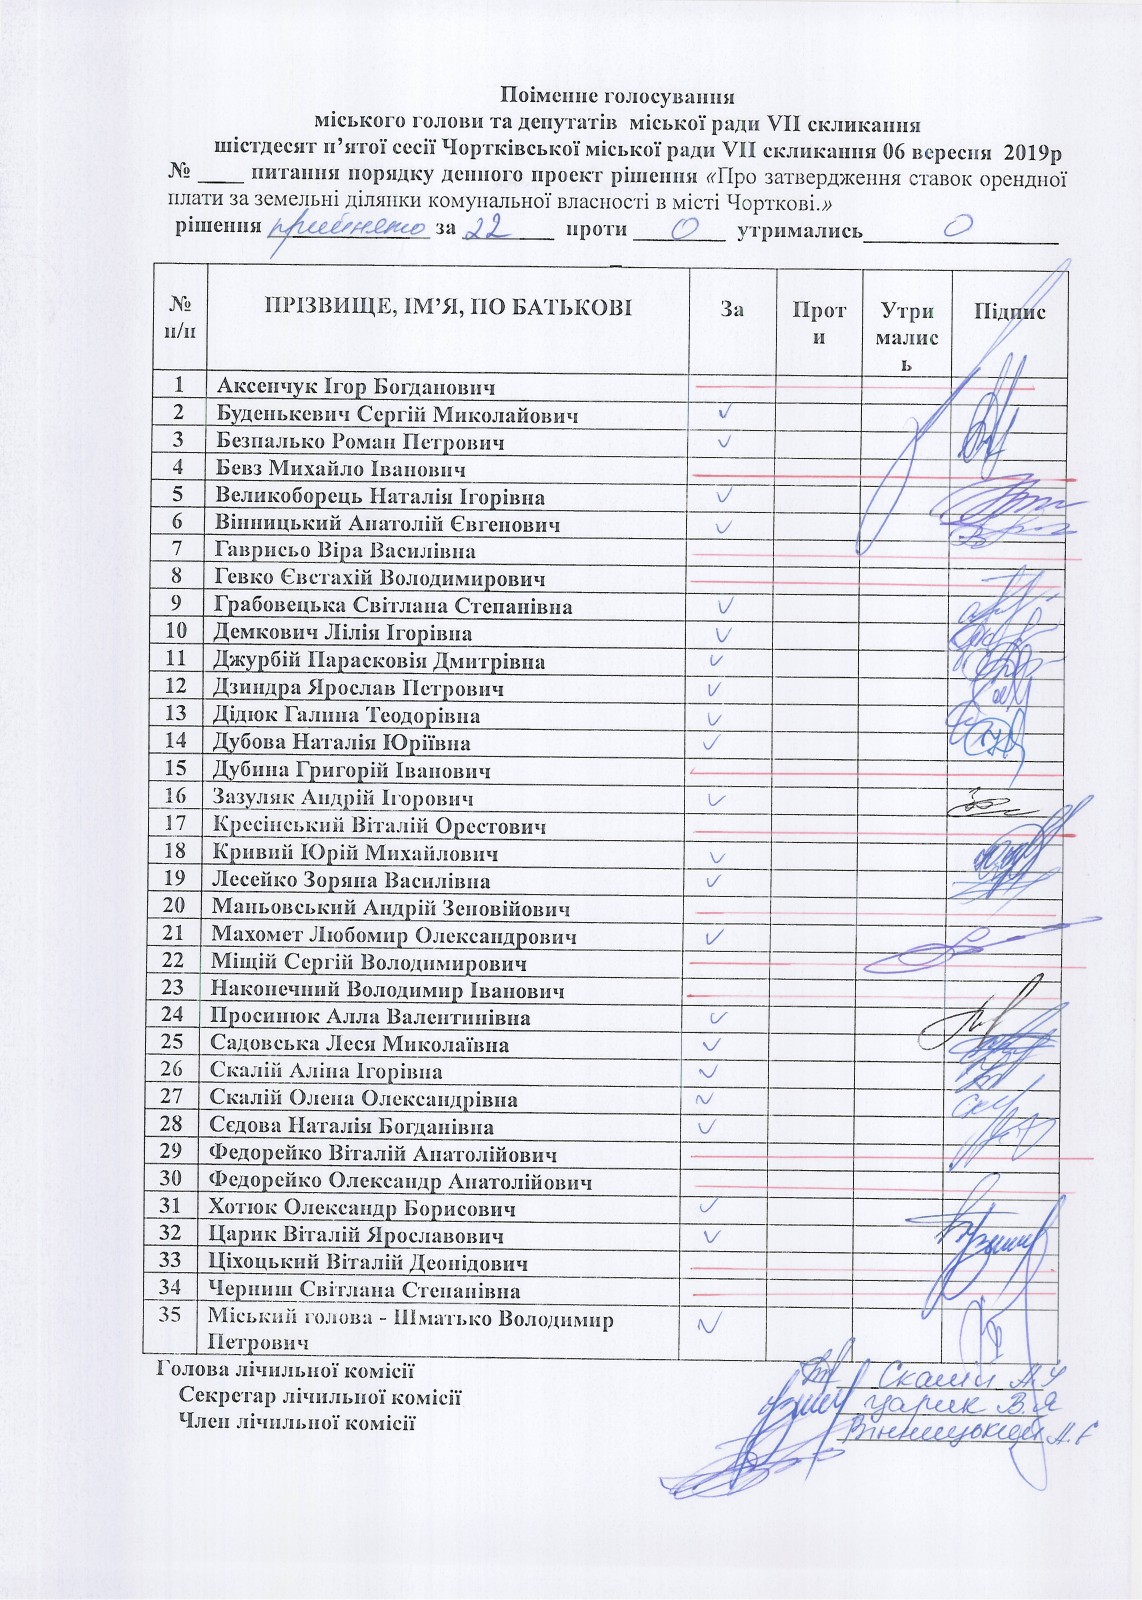 Поіменне голосування
міського голови та депутатів міської ради VII скликання
шістдесят п’ятої сесії Чортківської міської ради VII скликання 06 вересня 2019р
№ ____ питання порядку денного проект рішення «Про затвердження ставок орендної
плати за земельні ділянки комунальної власності в місті Чорткові.»
рішення прийнято за 22 проти 0 утримались 0
№ п/п ПРІЗВИЩЕ, ІМ’Я, ПО БАТЬКОВІ За Проти Утрималися Підпис
1 Аксенчук Ігор Богданович
2 Буденькевич Сергій Миколайович ✓
3 Безпалько Роман Петрович ✓
4 Бевз Михайло Іванович
5 Великоборець Наталія Ігорівна ✓
6 Вінницький Анатолій Євгенович ✓
7 Гаврисьо Віра Василівна
8 Гевко Євстахій Володимирович
9 Грабовецька Світлана Степанівна ✓
10 Демкович Лілія Ігорівна ✓
11 Джурбій Парасковія Дмитрівна ✓
12 Дзиндра Ярослав Петрович ✓
13 Дідюк Галина Теодорівна ✓
14 Дубова Наталія Юріївна ✓
15 Дубина Григорій Іванович
16 Зазуляк Андрій Ігорович ✓
17 Кресінський Віталій Орестович
18 Кривий Юрій Михайлович ✓
19 Лесейко Зоряна Василівна ✓
20 Маньовський Андрій Зеновійович
21 Махомет Любомир Олександрович ✓
22 Міщій Сергій Володимирович
23 Наконечний Володимир Іванович
24 Просинюк Алла Валентинівна ✓
25 Садовська Леся Миколаївна ✓
26 Скалій Аліна Ігорівна ✓
27 Скалій Олена Олександрівна ✓
28 Сєдова Наталія Богданівна ✓
29 Федорейко Віталій Анатолійович
30 Федорейко Олександр Анатолійович
31 Хотюк Олександр Борисович ✓
32 Царик Віталій Ярославович ✓
33 Ціхоцький Віталій Деонідович
34 Черниш Світлана Степанівна
35 Міський голова - Шматько Володимир ✓
Петрович
Голова лічильної комісії Скалій А.І
Секретар лічильної комісії Царик В.Я
Член лічильної комісії Вінницький А.Є